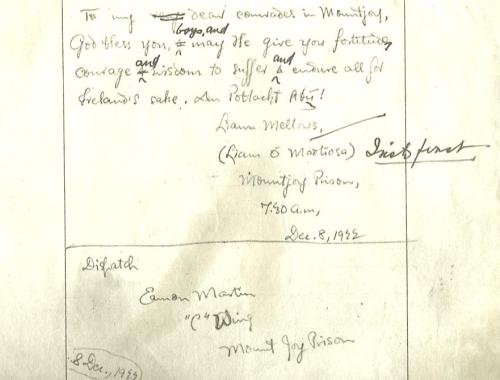 To my dear comrades in Mountjoy,
boys, and
God bless you, & may He give you fortitude,
and and
courage & wisdom to suffer & endure all for
Ireland's sake. An Poblacht Abú!
Liam Mellows,
(Liam Ó Maoliosa) Irish first
Mountjoy Prison,
7.30 a.m,
Dec. 8, 1922
Dispatch
Eamon Martin
"C" Wing
Mount Joy Prison
8 Dec., 1922